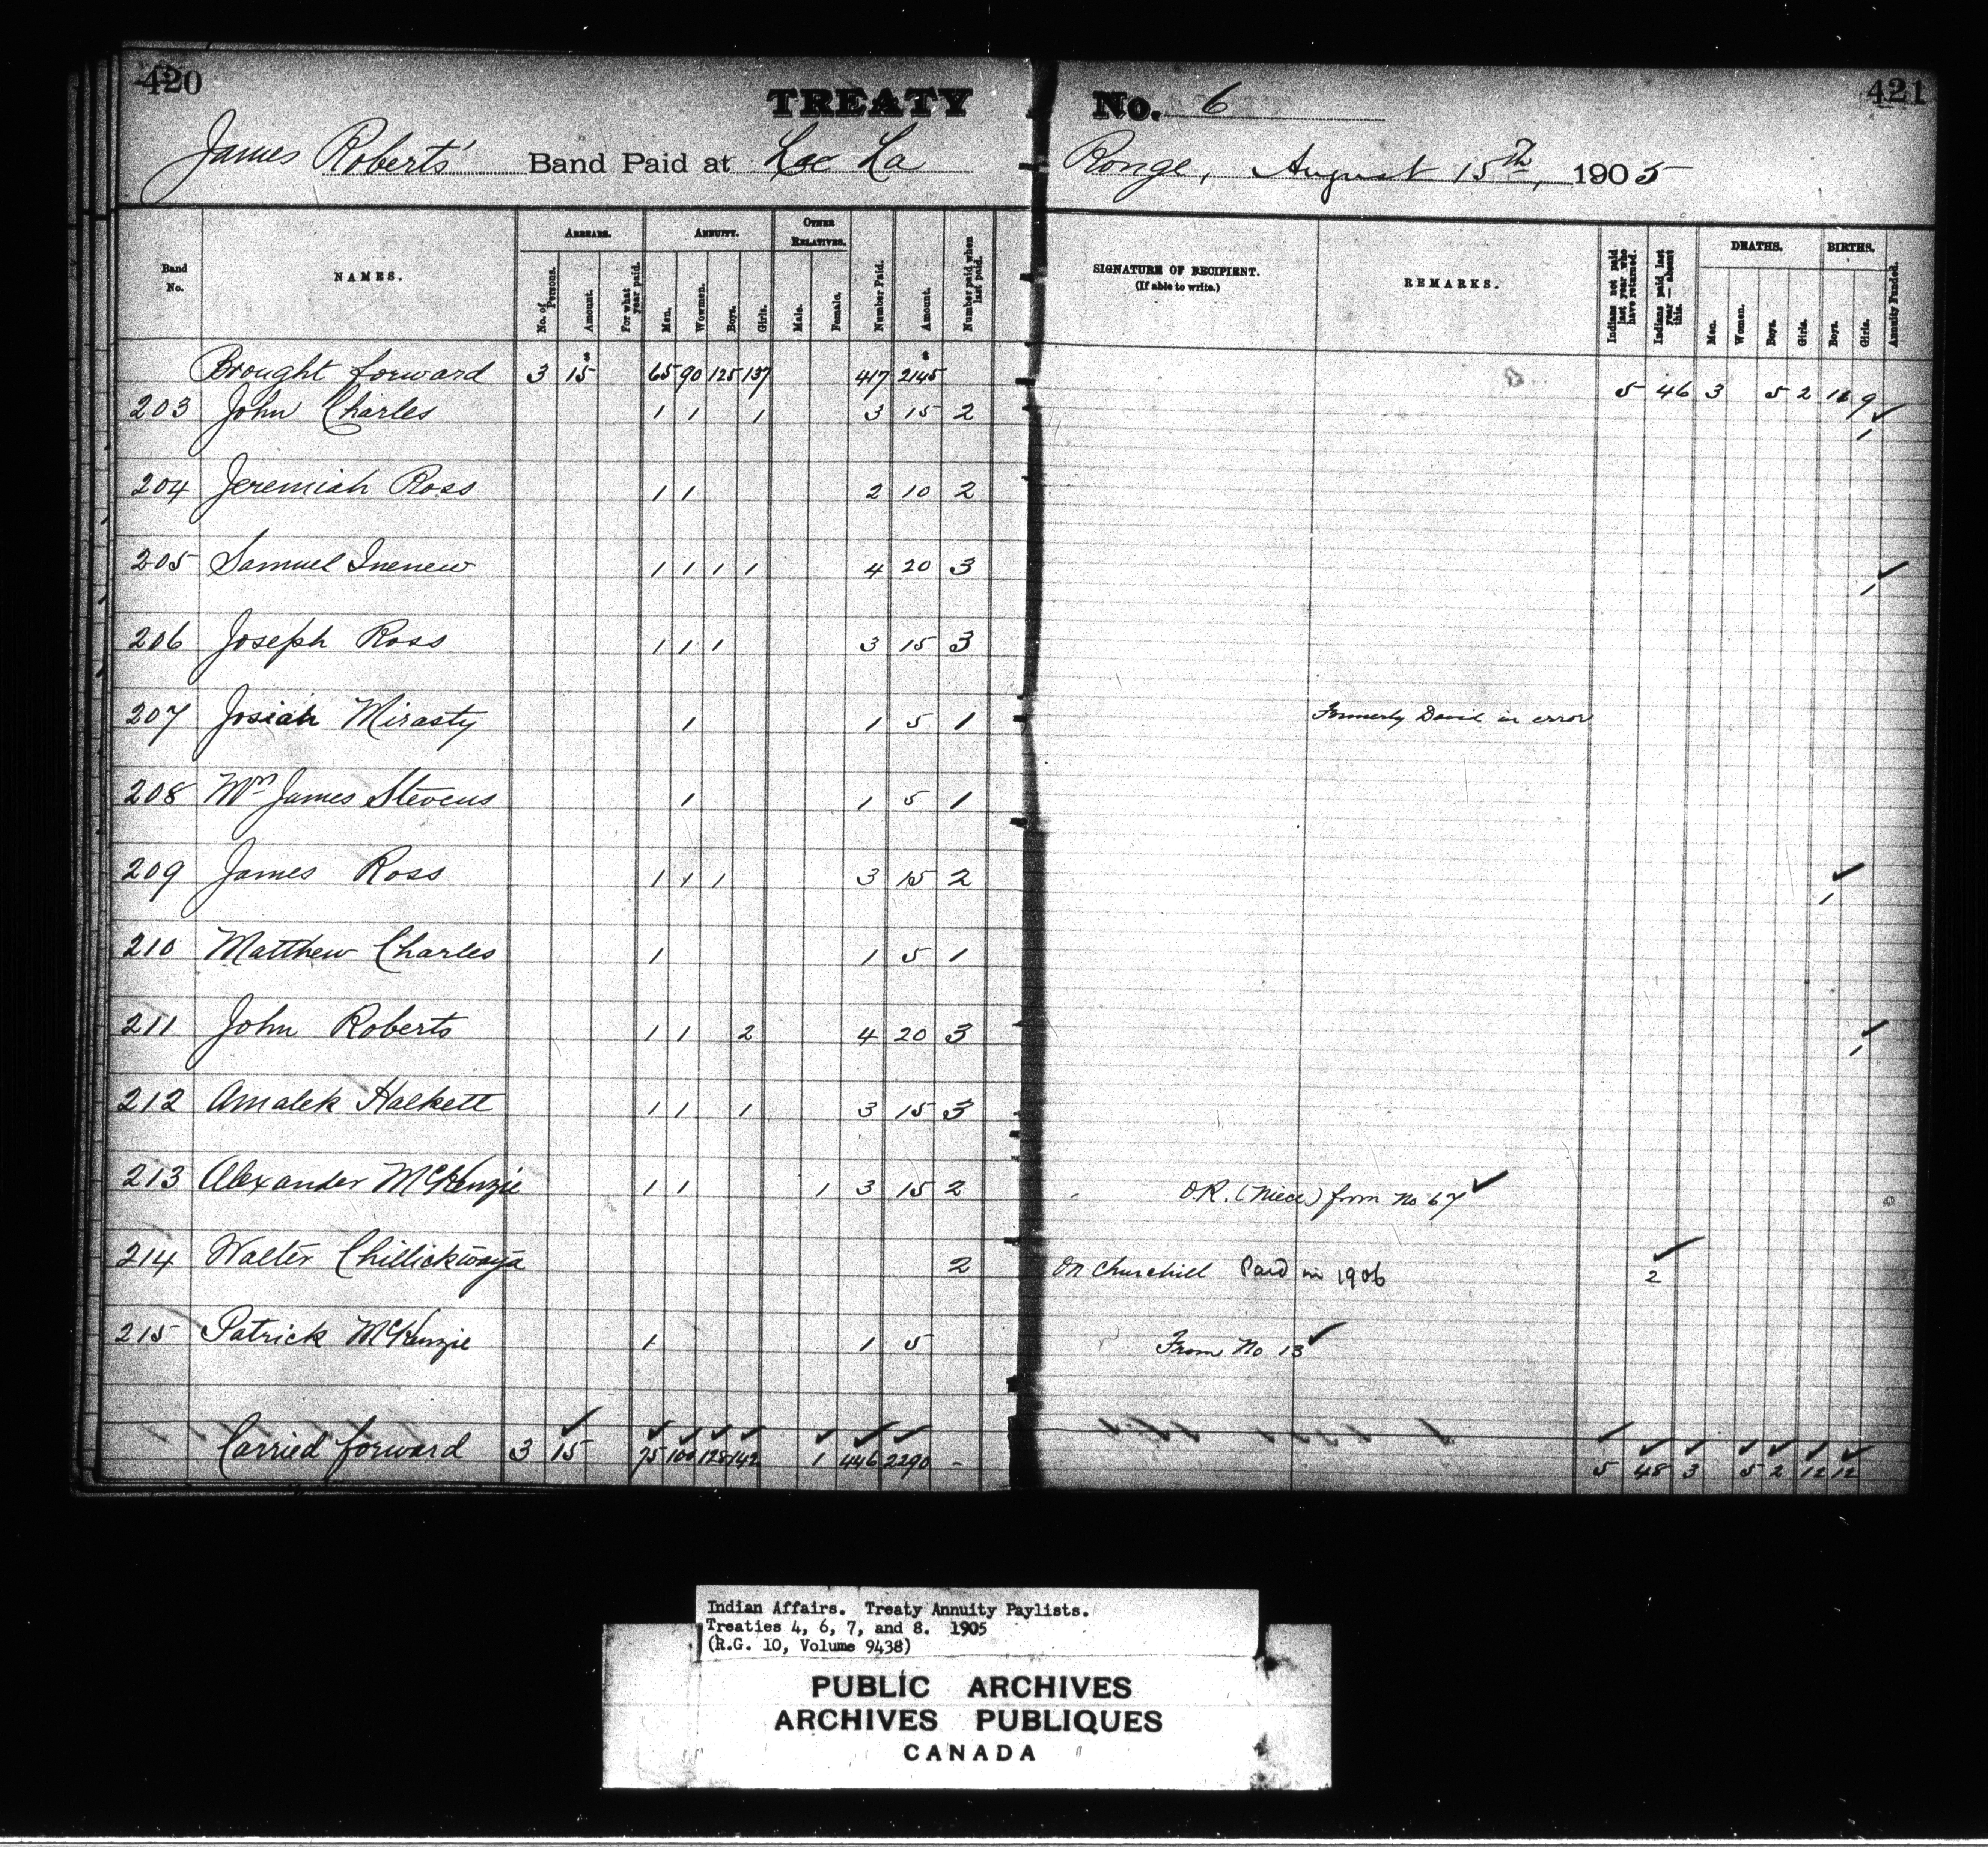 420 TREATY No. 6 421
James Roberts' Band Paid at Lac La Ronge, August 15th, 1905
Band No. NAMES. ARREARS. ANNUITY. OTHER RELATIVES. Number Paid. Amount. Number paid when last paid. SIGNATURE OF RECIPIENT. (If able to write.) REMARKS. Indians not paid last year who have returned. Indians paid last year — absent this. DEATHS. BIRTHS. Annuity Funded.
No. of Persons. Amount. For what year paid. Men. Wowmen. Boys. Girls. Male. Female. Men. Women. Boys. Girls. Boys. Girls.
Brought forward 3 15 65 90 125 137 417 2145 5 46 3 5 2 11 9
203 John Charles 1 1 1 3 15 2 ✓ 1
204 Jeremiah Ross 1 1 2 10 2
205 Samuel Inenew 1 1 1 1 4 20 3 ✓ 1
206 Joseph Ross 1 1 1 3 15 3
207 Josiah Mirasty 1 1 5 1 Formerly David in error
208 Mrs James Stevens 1 1 5 1
209 James Ross 1 1 1 3 15 2 ✓ 1
210 Matthew Charles 1 1 5 1
211 John Roberts 1 1 2 4 20 3 ✓ 1
212 Amalek Halkett 1 1 1 3 15 3
213 Alexander McKenzie 1 1 1 3 15 2 O.R. (Niece) from No 67 ✓
214 Walter Chillickwaya 2 On Churchill Paid in 1906 ✓ 2
215 Patrick McKenzie 1 1 5 From No 13 ✓
Carried forward 3 15 75 100 128 142 1 446 2290 - 5 48 3 5 2 12 12
Indian Affairs. Treaty Annuity Paylists.
Treaties 4, 6, 7, and 8. 1905
(R.G. 10, Volume 9438)
PUBLIC ARCHIVES
ARCHIVES PUBLIQUES
CANADA